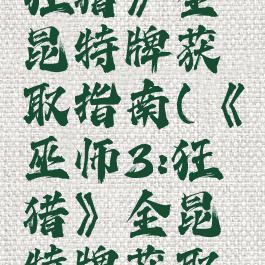 狂猎》全
昆特牌获
取指南(《
巫师3:狂
猎》全昆
特牌获取